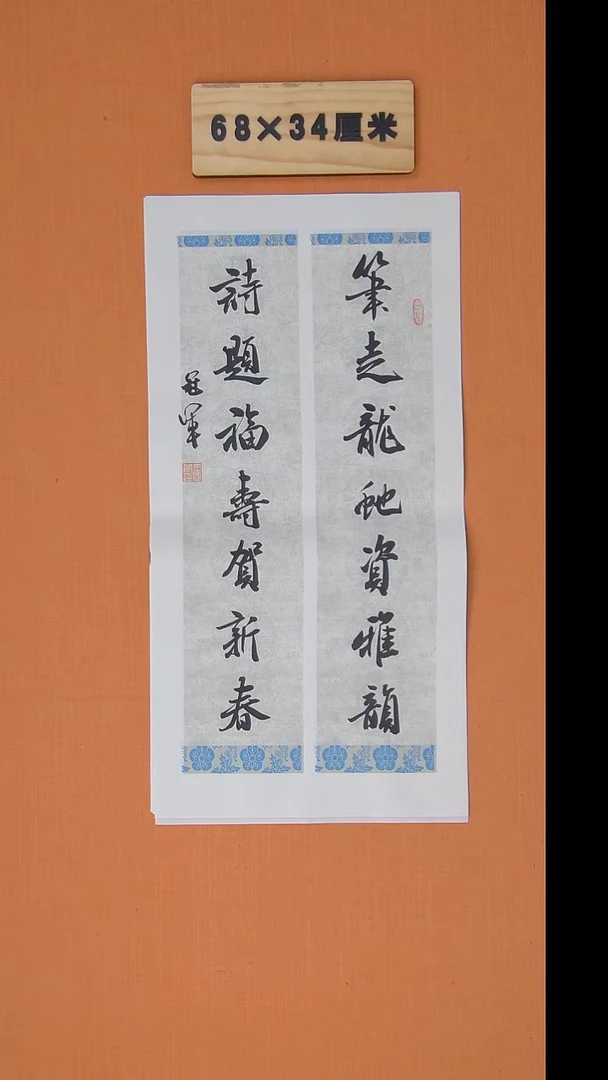 68×34厘米
筆走龍蛇資雅韻
詩題福壽賀新春
冠軍